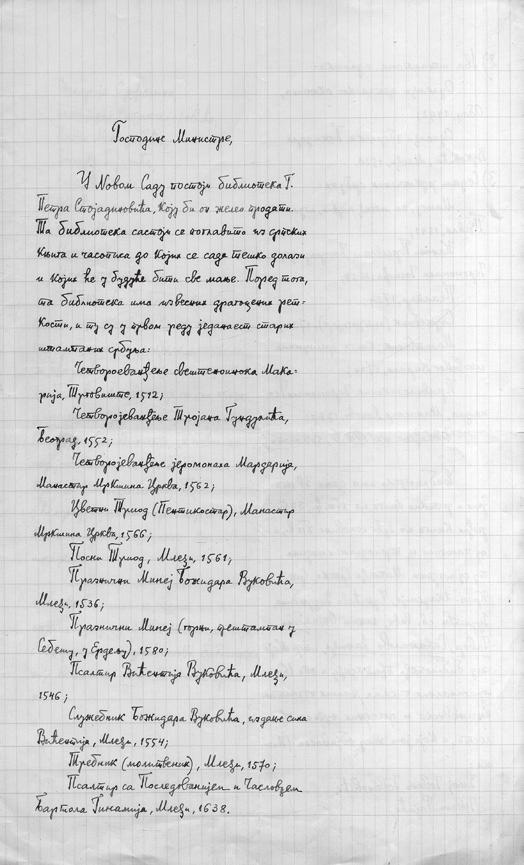 Господине Министре,
У Новом Саду постоји библиотека Г.
Петра Стојадиновића, коју би он желео продати.
Та библиотека састоји се поглавито из српских
књига и часописа до којих се сада тешко долази
и којих ће у будуће бити све мање. Поред тога,
та библиотека има извесних драгоцених рет-
кости, и ту су у првом реду једанаест старих
штампаних србуља:
Четвороеванђеље свештеноинока Мака-
рија, Трговиште, 1512;
Четворојеванђеље Тројана Гундулића,
Београд, 1552;
Четворојеванђеље јеромонаха Мардарија,
Манастир Мркшина Црква, 1562;
Цветни Триод (Пентикостар), Манастир
Мркшина Црква, 1566;
Посни Триод, Млеци, 1561;
Празнични Минеј Божидара Вуковића,
Млеци, 1536;
Празнични Минеј (горњи, прештампан у
Себешу, у Ердељу), 1580;
Псалтир Вићентија Вуковића, Млеци,
1546;
Службеник Божидара Вуковића, издање сина
Вићентија, Млеци, 1554;
Требник (молитвеник), Млеци, 1570;
Псалтир са Последованијем и Часловцем
Бартола Гинамија, Млеци, 1638.